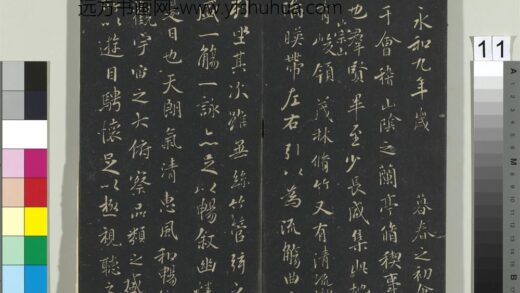 远方书画网-www.yfshuhua.com
永和九年歲 暮春之初會
于會稽山陰之蘭亭脩禊事
也羣賢畢至少長咸集此地
崇山
峻領茂林脩竹又有清流
湍暎帶左右引以為流觴曲
列坐其次雖無絲竹管弦之
盛一觴一詠亦足以暢敘幽情
是日也天朗氣清惠風和暢
觀宇宙之大俯察品類之盛
以遊目騁懷足以極視聽之
11